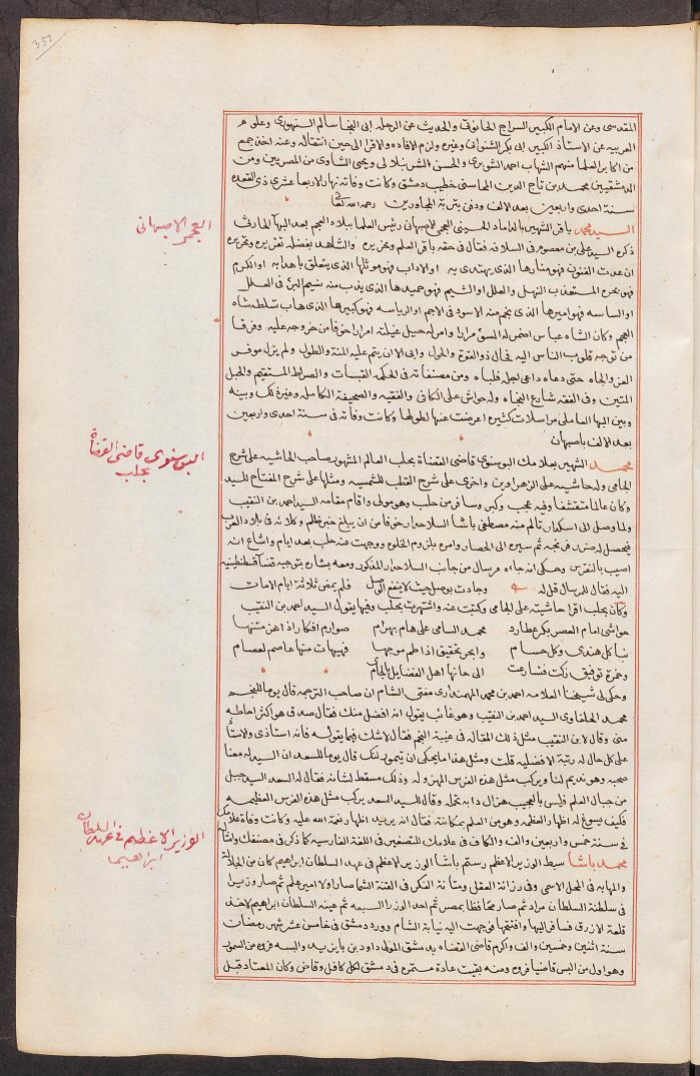 351
المقدسى وعن الامام الكبير السراج الحانوتى والحديث عن الرحله ابى النجا سالم السنهورى وعلوم
العربيه عن الاستاذ الكبير ابى بكر الشنوانى وغيره ولزم الافاده والاقرا الى حين انتقاله وعنه اخذ جمع
من اكابر العلما منهم الشهاب احمد الشوبرى والحسن الشرنبلالى ويحيى الشاوى من المصريين ومن
الدمشقيين محمد بن تاج الدين المحاسنى خطيب دمشق وكانت وفاته نهار الاربعا عشرى ذى القعده
سنة احدى واربعين بعد الالف ودفن بتربة المجاورين رحمه الله تعالى
العجمى الاصبهانى
السيد محمد باقر الشهير بالداماد الحسينى العجمى الاصبهانى رئيس العلما ببلاد العجم بعد البها الحارثى
ذكره السيد على بن معصوم فى السلافه فقال فى حقه باقر العلم ونحريره والشاهد بفضله تقريره وتحريره
ان عدت الفنون فهو منارها الذى يهتدى به او الاداب فهو موئلها الذى يتعلق باهدابه او الكرم
فهو بحره المستعذب النهل والعلل او الشيم فهو حميدها الذى يدب منه نسيم البرء فى العلل
او السياسه فهو اميرها الذى تجم منه الاسود فى الاجم او الرياسه فهو كبيرها الذى هاب تسلطه شاه
العجم وكان الشاه عباس اضمر له السوء مرارا وامر له حبل غيلته امرارا خوفا من خروجه عليه وفرقا
من توجه قلوب الناس اليه فحال ذو القوة والحول وابى الا ان يتم عليه المنة والطول ولم يزل موفور
العز والجاه حتى دعاه داعى اجله فلباه ومن مصنفاته فى الحكمة القبسات والصراط المستقيم والحبل
المتين وفى الفقه شارع النجاه وله حواش على الكافى والفقيه والصحيفة الكامله وغير ذلك وبينه
وبين البها العاملى مراسلات كثيره اعرضت عنها لطولها وكانت وفاته فى سنة احدى واربعين
بعد الالف باصبهان
البوسنوى قاضى القضاة
بحلب
محمد الشهير بعلامك البوسنوى قاضى القضاة بحلب العالم المشهور صاحب الحاشيه على شرح
الجامى وله حاشيه على الزهراوين واخرى على شرح القطب للشمسيه ومثلها على شرح المفتاح للسيد
وكان عالما متقشفا وفيه عجب وكبر وسافر من حلب وهو مولى واقام مقامه السيد احمد بن النقيب
ولما وصل الى اسكدار تالم منه مصطفى باشا السلاحدار خوفا من ان يبلغ خبر ظلم وكلائه فى بلاد العرب
فيحصل له ضرر فرتجه ثم سيره الى الحصار وامره بلزوم الخلوه ووجهت عنه حلب بعد ايام واشاع انه
اصيب بالنقرس وحكى انه جاءه مرسال من جانب السلاحدار المذكور ومعه بشاره بتوجيه قضا قسطنطينيه
اليه فقال للمرسال قل له وجادت بوصل حيث لا ينفع الوصل فلم يمض ثلاثة ايام الا مات
وكان بحلب اقرا حاشيته على الجامى وكتبت عنه واشتهرت بحلب وفيها يقول السيد احمد بن النقيب
حواشى امام العصر بكر عطارد محمد السامى على هام بهرام صوارم افكار اذا هز متنها
نبا كل هندى وكل حسام وابحر تحقيق اذا طم موجها فهيهات منها عاصم لعصام
وخمرة توفيق زكت فتسارعت الى حانها اهل الفضايل بالجام
وحكى لى شيخنا العلامه احمد بن محمد المهمندارى مفتى الشام ان صاحب الترجمه قال يوما للنجم
محمد الحلفاوى السيد احمد بن النقيب وهو غائب يقول انه افضل منك فقال صدق هو اكثر احاطه
منى وقال لابن النقيب مثل ذلك المقاله فى غيبة النجم فقال لاشك فيما يقوله فانه استاذى ولاستاذ
على كل حال له رتبة الافضليه قلت ومثل هذا ما يحكى ان تيمورلنك قال يوما للسعد ان السيد له معنا
صحبه وهو نديم لنا ويركب مثل هذه الفرس المهزوله وذلك مسقط لشانه فقال له السعد السيد جبل
من جبال العلم فليس بالعجيب هزال دابه تحمله وقال للسيد السعد يركب مثل هذه الفرس العظيمه
فكيف يسوغ له اظهار العظمه وهو من العلم بمكانته فقال انه يريد اظهار نعمة الله عليه وكانت وفاة علامك
فى سنة خمس واربعين والف والكاف فى علامك للتصغير فى اللغة الفارسيه كما ذكر فى مصنفك
الوزير الاعظم فى عهد السلطان
ابراهيم
محمد باشا سبط الوزير الاعظم رستم باشا الوزير الاعظم فى عهد السلطان ابراهيم كان من الجلالة
والمهابه فى المحل الاسمى وفى رزانة العقل ومتانة الفكر فى القنة الشما صار اولا امير علم ثم صار وزيرا
فى سلطنة السلطان مراد ثم صار محافظا بمصر ثم احد الوزرا السبعه ثم عينه السلطان ابراهيم لاخذ
قلعة الازرق فسافر اليها وافتتحها فوجهت اليه نيابة الشام وورد دمشق فى خامس عشر شهر رمضان
سنة اثنين وخمسين والف واكرم قاضى القضاه بدمشق المولى داود بن بايزيد والبسه فروه من السمور
وهو اول من البس قاضيا فروه ومنه بقيت عادة مستمره فى دمشق لكل كافل وقاض وكان المعتاد قبل